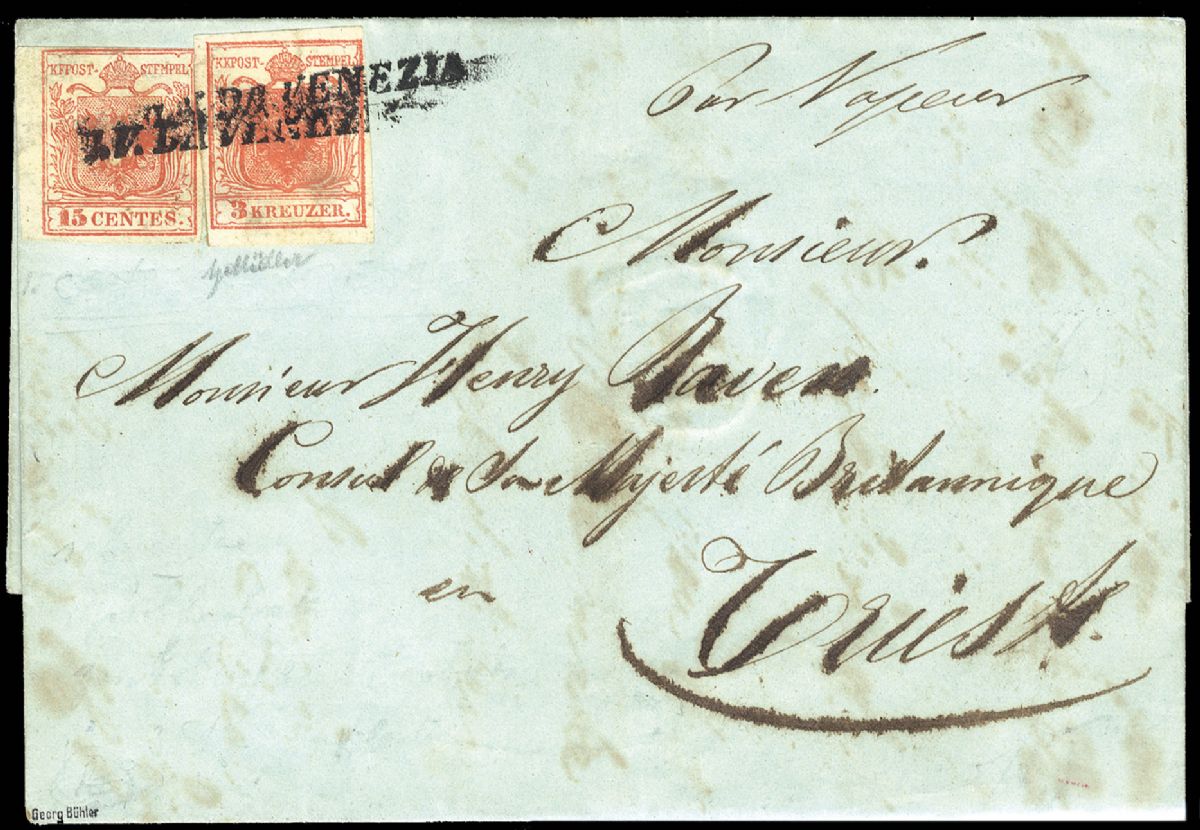 KKPOST-STEMPEL KKPOST-STEMPEL
L.V. DA VENEZIA
L.V. DA VENEZ
15 CENTES. 3 KREUZER.
Par Vapeur.
Monsieur.
Monsieur Henry Raven.
Consul de Sa Majesté Britannique
en Triest.
Georg Bühler